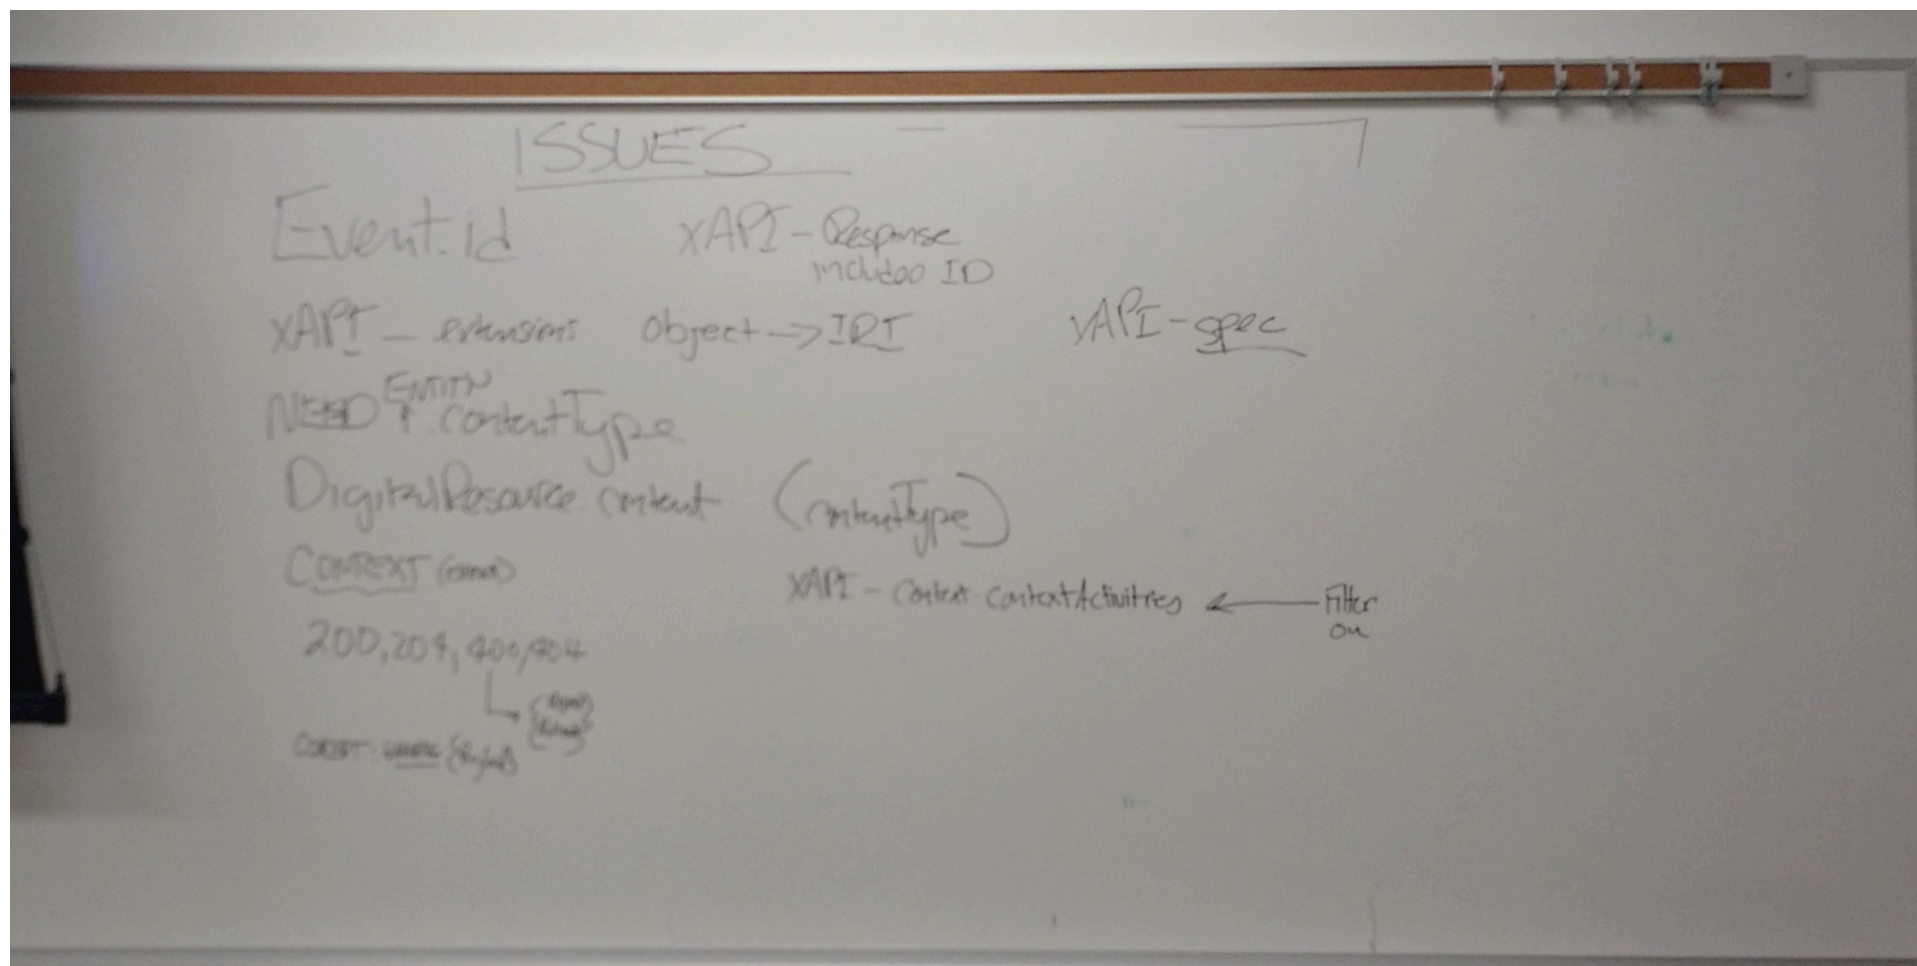 ISSUES
Event.id xAPI - Response
includes ID
xAPI - extensions object → IRI xAPI - spec
ENTITY
NEED ↑ .contentType
DigitalResource.content (contentType)
CONTEXT
xAPI - Context contextActivities ← Filter
on
200, 204, 400, 404